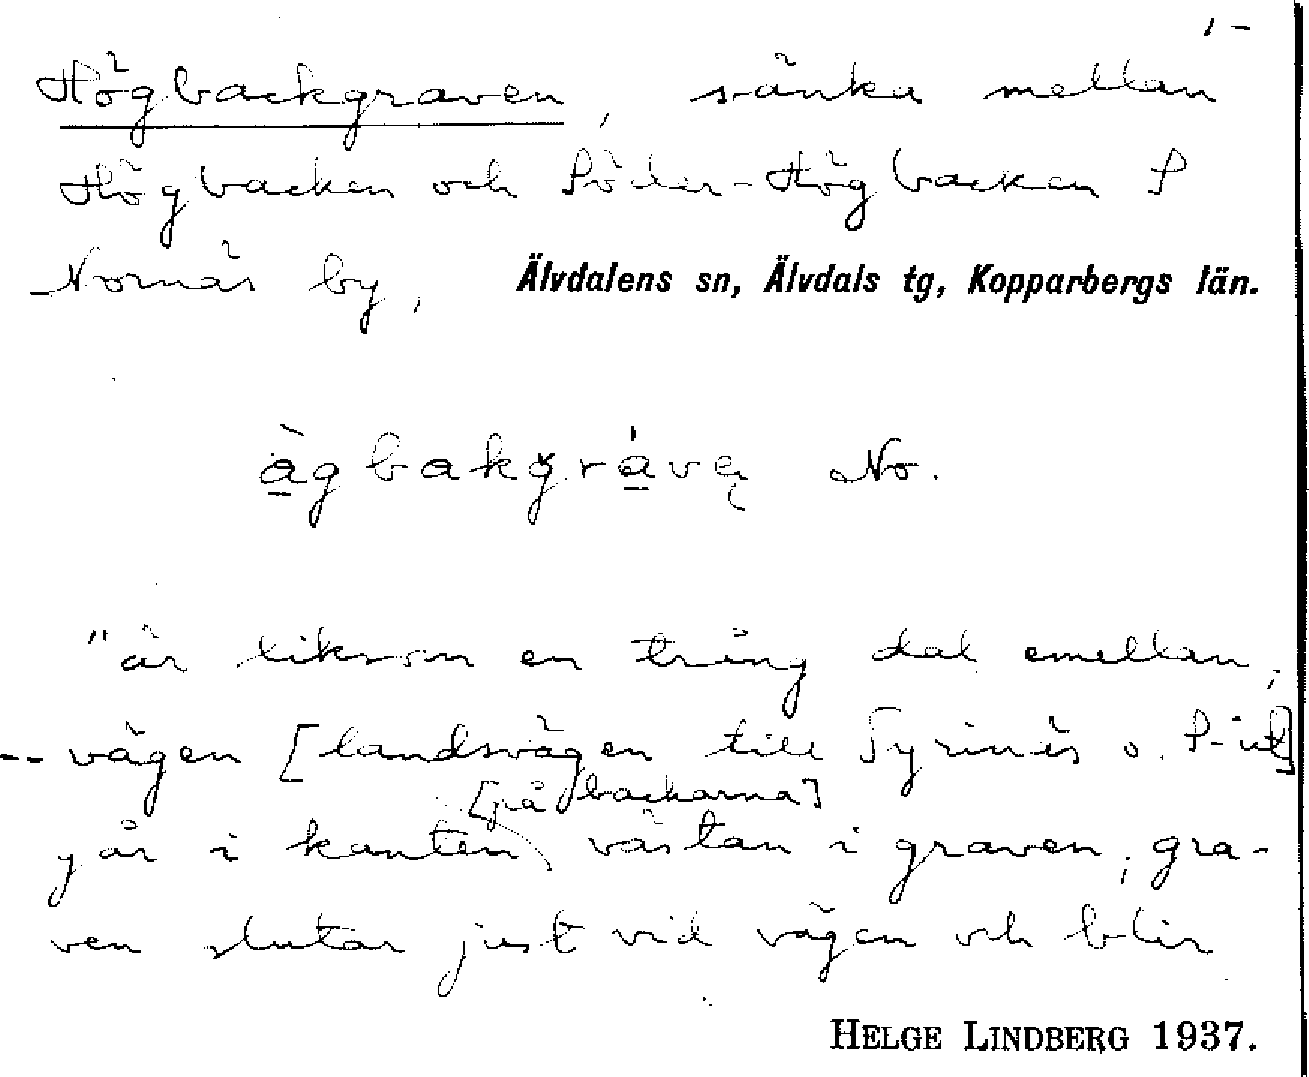 1-
Högbackgraven, sänka mellan
Högbacken och Söder-Högbacken S
Nornäs by, Älvdalens sn, Älvdals tg, Kopparbergs län.
àgbakgráven No.
"är liksom en trång dal emellan,
-- vägen [landsvägen till Tyrinäs o. S-ut]
[på backarna]
går i kanten västan i graven, gra-
ven slutar just vid vägen och blir
HELGE LINDBERG 1937.